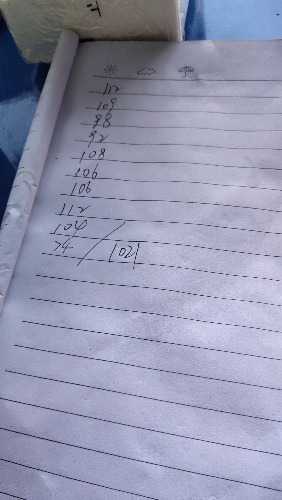 112
109
98
92
108
106
106
112
104
74 / 1021